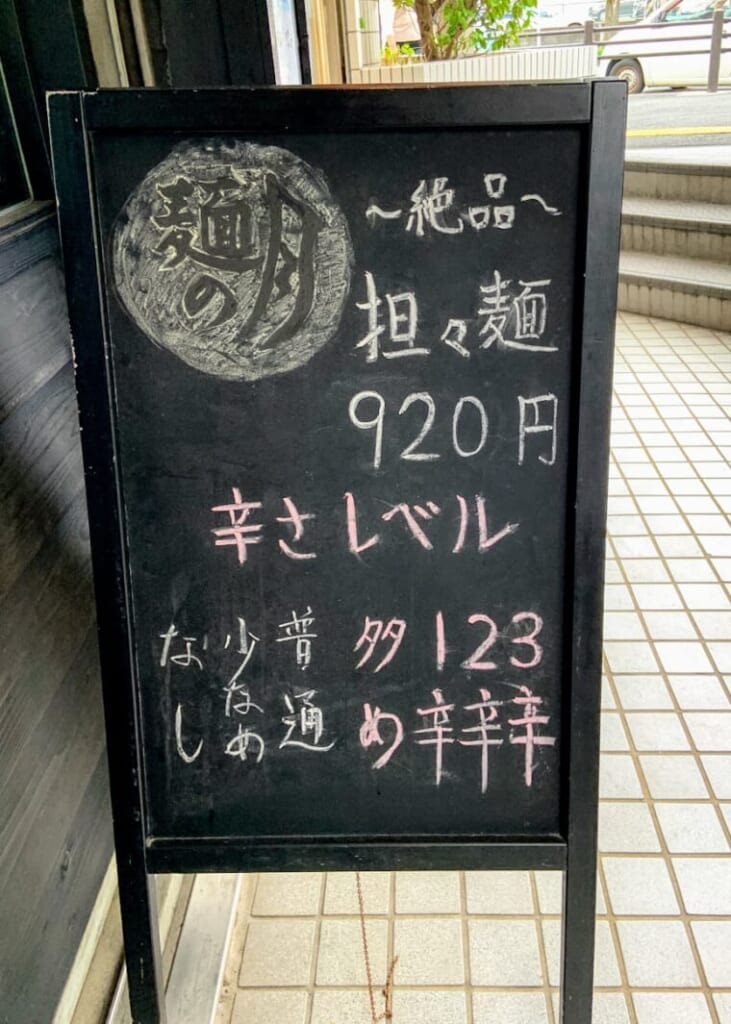 麺の月
~絶品~
担々麺
920円
辛さレベル
なし
少なめ
普通
多め
1辛
2辛
3辛